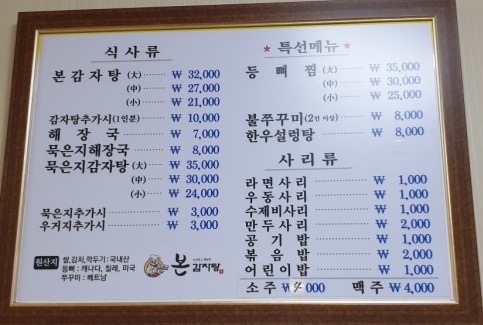 식사류
본감자탕 (大) ₩ 32,000
(中) ₩ 27,000
(小) ₩ 21,000
감자탕추가시(1인분) ₩ 10,000
해장국 ₩ 7,000
묵은지해장국 ₩ 8,000
묵은지감자탕 (大) ₩ 35,000
(中) ₩ 30,000
(小) ₩ 24,000
묵은지추가시 ₩ 3,000
우거지추가시 ₩ 3,000
원산지
쌀,김치,깍두기:국내산
등뼈 : 캐나다, 칠레, 미국
쭈꾸미 : 베트남
본감자탕
* 특선메뉴 *
등뼈찜 (大) ₩ 35,000
(中) ₩ 30,000
(小) ₩ 25,000
불쭈꾸미(2인 이상) ₩ 8,000
한우설렁탕 ₩ 8,000
사리류
라면사리 ₩ 1,000
우동사리 ₩ 1,000
수제비사리 ₩ 1,000
만두사리 ₩ 2,000
공기밥 ₩ 1,000
볶음밥 ₩ 2,000
어린이밥 ₩ 1,000
소주 ₩ 4000 맥주 ₩ 4,000